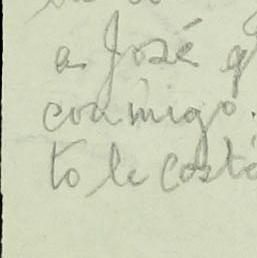 a José q
conmigo.
to le costó